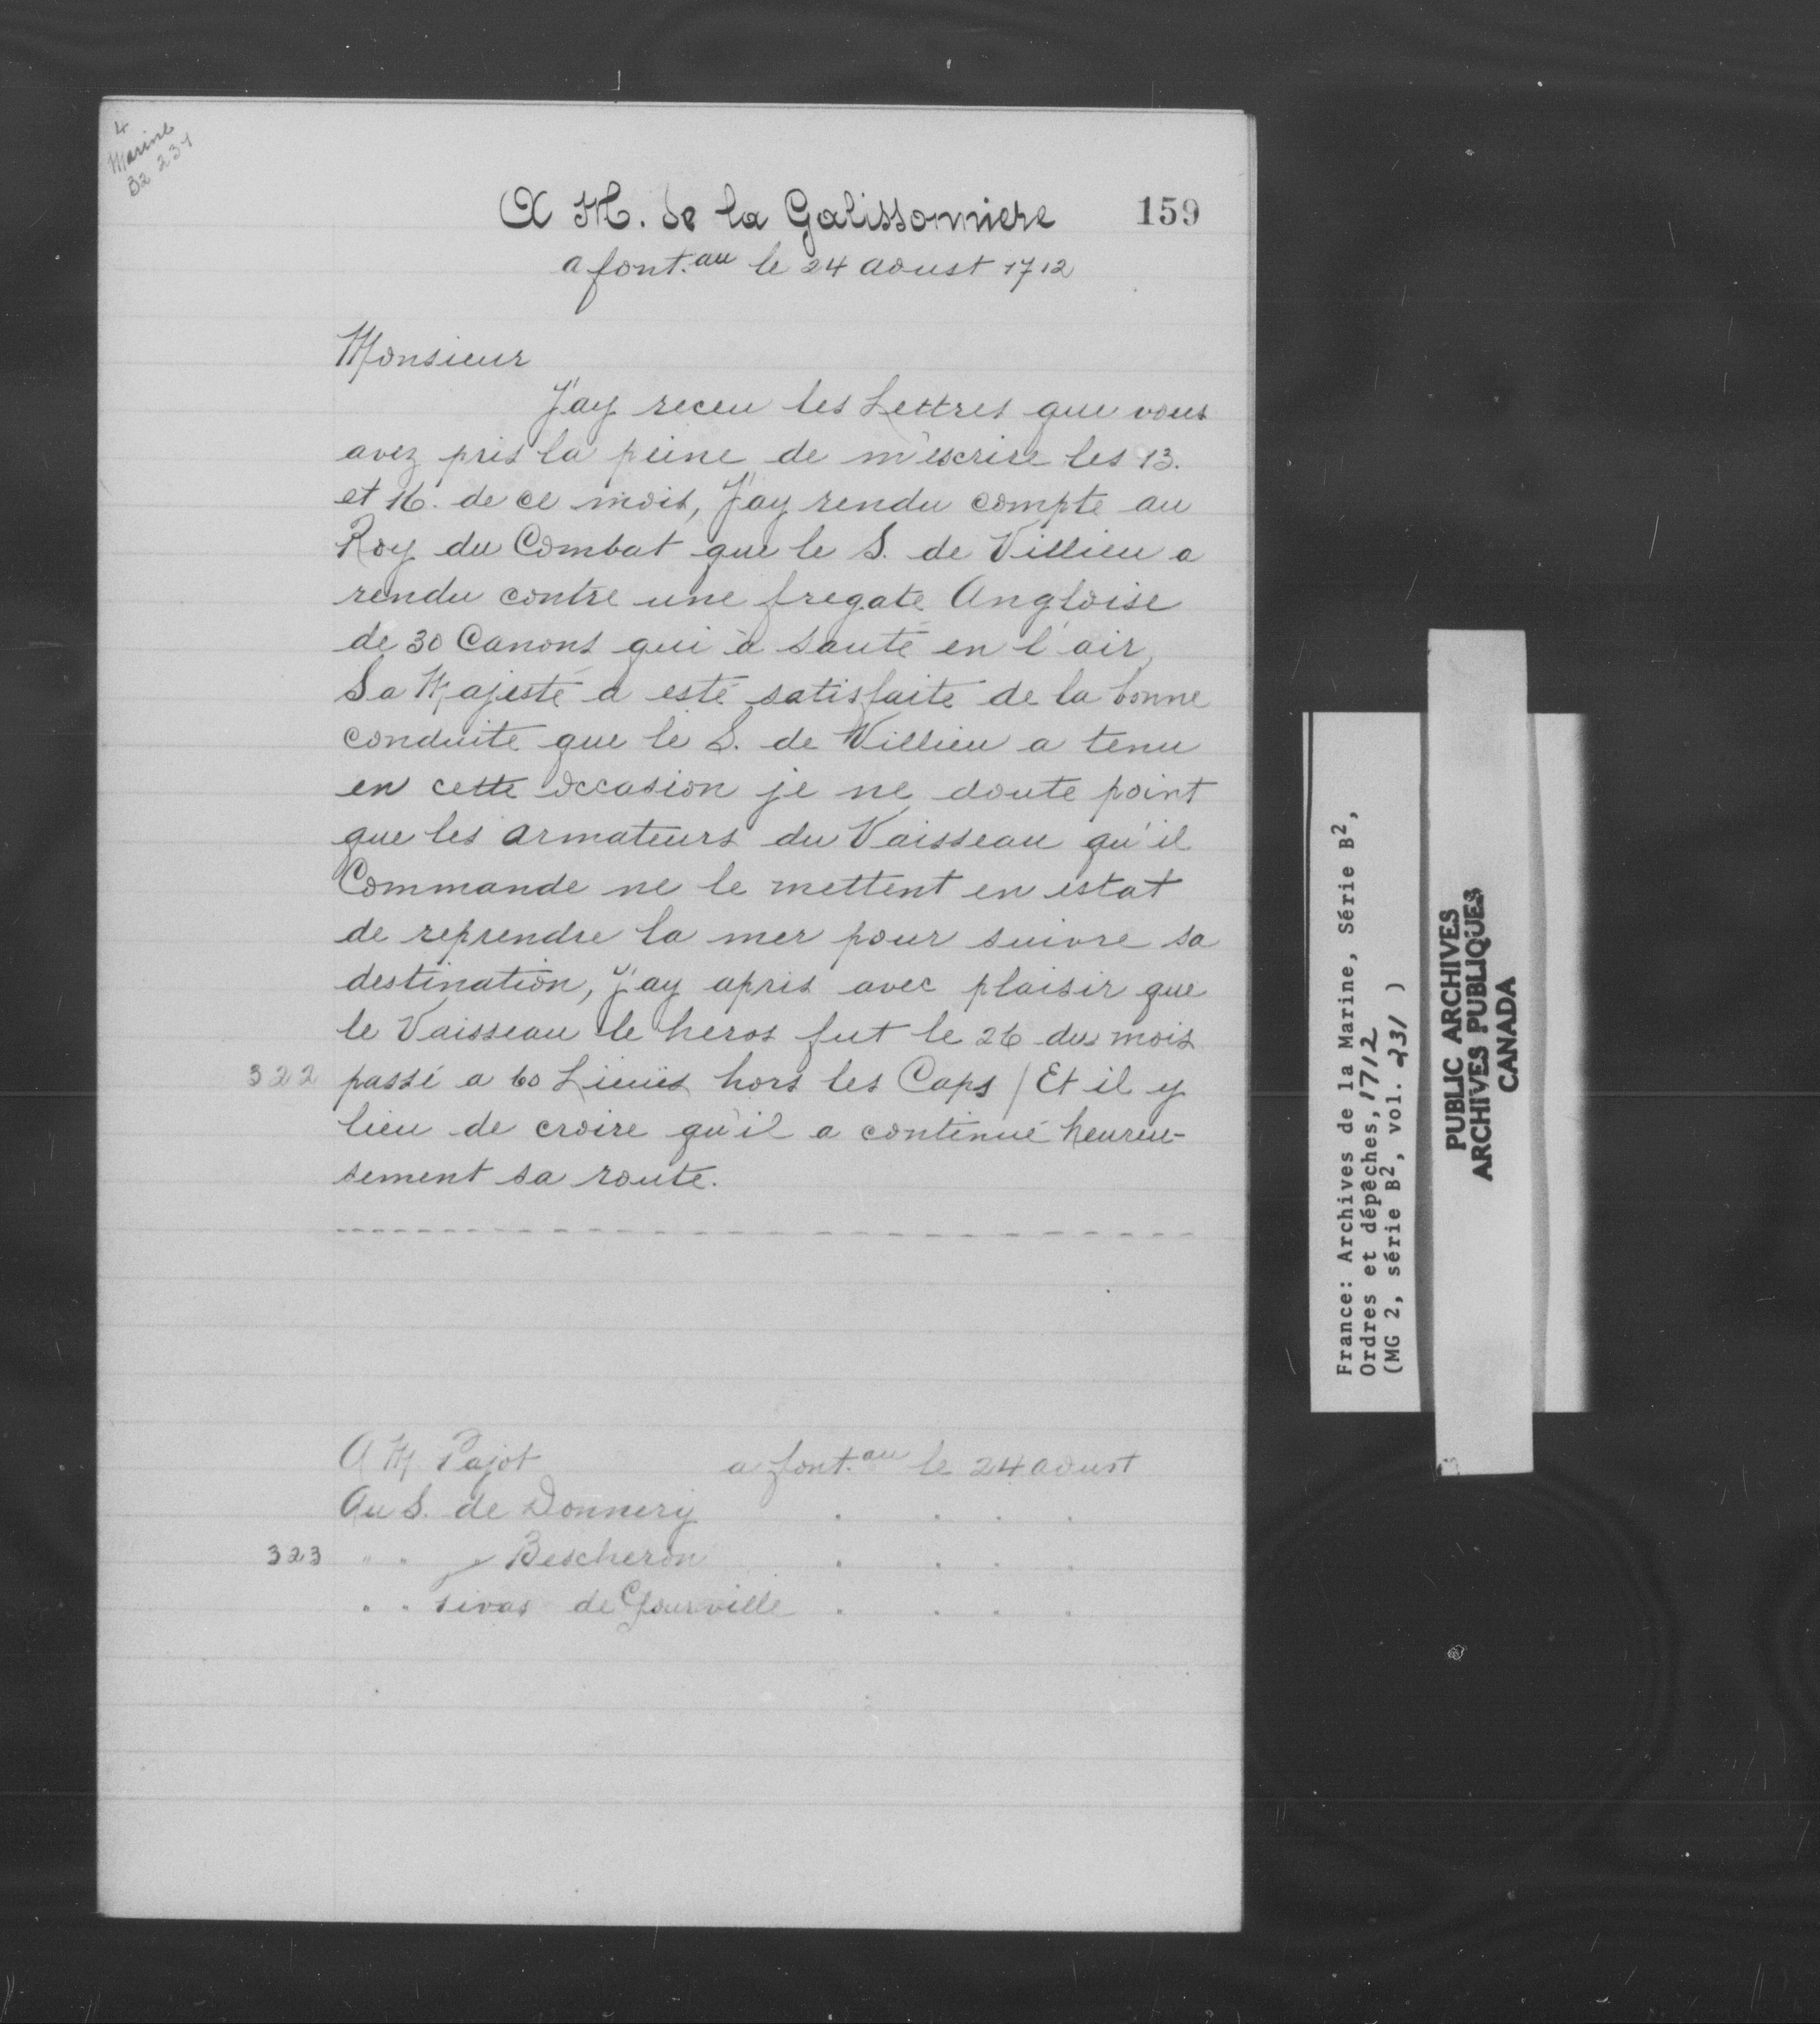 4
Marine
B2 231
A M. de la Galissonniere 159
a font.au le 24 aoust 1712
Monsieur
J'ay receu les Lettres que vous
avez pris la peine de m'escrire les 13.
et 16. de ce mois, J'ay rendu compte au
Roy du Combat que le S. de Villieu a
rendu contre une fregate Angloise
de 30 Canons qui à sauté en l'air,
Sa Majesté a esté satisfaite de la bonne
conduite que le S. de Villieu a tenu
en cette occasion je ne doute point
que les armateurs du Vaisseau qu'il
Commande ne le mettent en estat
de reprendre la mer pour suivre sa
destination, J'ay apris avec plaisir que
le Vaisseau le heros fut le 26 du mois
322 passé a 60 Lieuës hors les Caps / Et il y
lieu de croire qu'il a continué heureu-
sement sa route.
A M. Pajot a font.au le 24 aoust
Au S. de Donnery . . . .
323 " " " Bescheron . . . .
" " sivas de Gourville . . . .
France: Archives de la Marine, Série B2,
Ordres et dépêches, 1712
(MG 2, série B2, vol. 231 )
PUBLIC ARCHIVES
ARCHIVES PUBLIQUES
CANADA